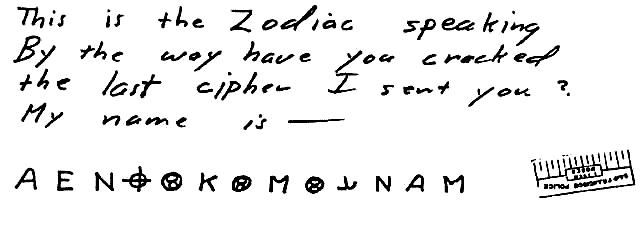 This is the Zodiac speaking
By the way have you cracked
the last cipher I sent you ?
My name is ——
A E N ⌖ ⊗ K ⊗ M ⊗ N A M
SAN FRANCISCO POLICE